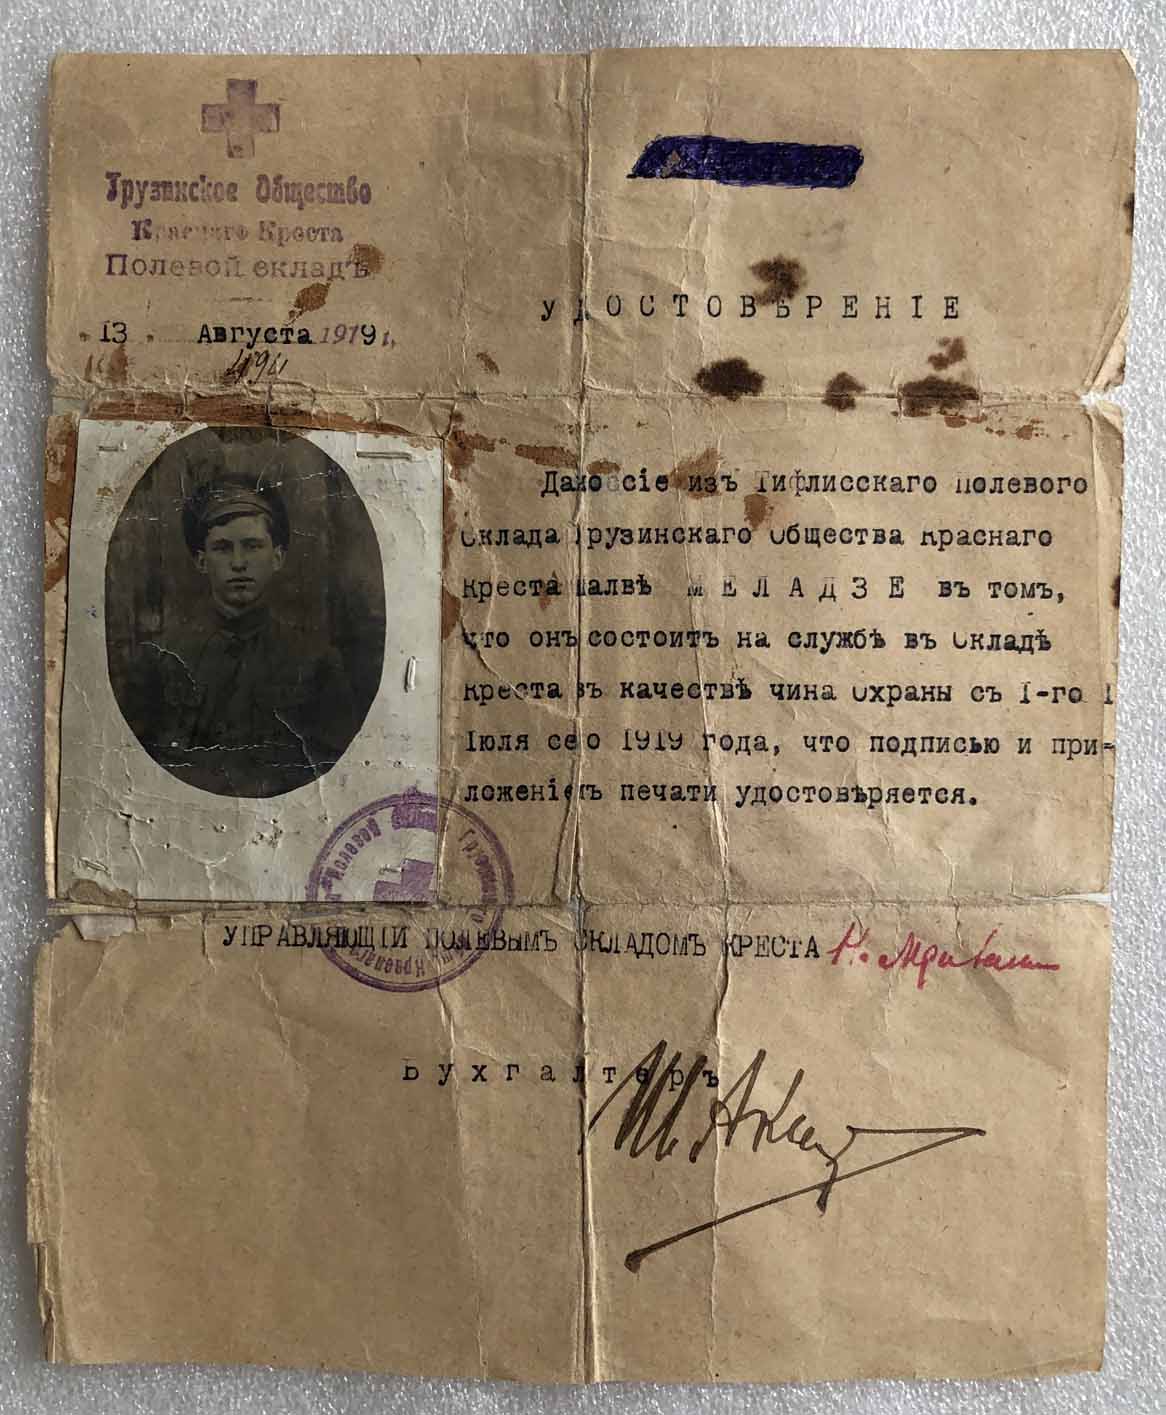 Грузинское Общество
Краснаго Креста
Полевой складъ
13 Августа 1919 г.
494
УДОСТОВѢРЕНІЕ
Дано сіе изъ Тифлисскаго Полевого
Склада Грузинскаго Общества Краснаго
Креста Шалвѣ МЕЛАДЗЕ въ томъ,
что онъ состоитъ на службѣ въ Складѣ
Креста въ качествѣ чина Охраны съ I-го I
Іюля сего 1919 года, что подписью и при-
ложеніемъ печати удостовѣряется.
Полевой складъ Грузинскаго Краснаго
УПРАВЛЯЮЩІЙ ПОЛЕВЫМЪ СКЛАДОМЪ КРЕСТА
Бухгалтеръ